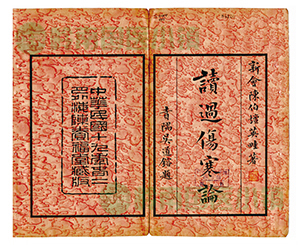 新會陳伯壇英畦著
讀過傷寒論
吳道鎔題
中華民國十九年
陳養福堂藏版